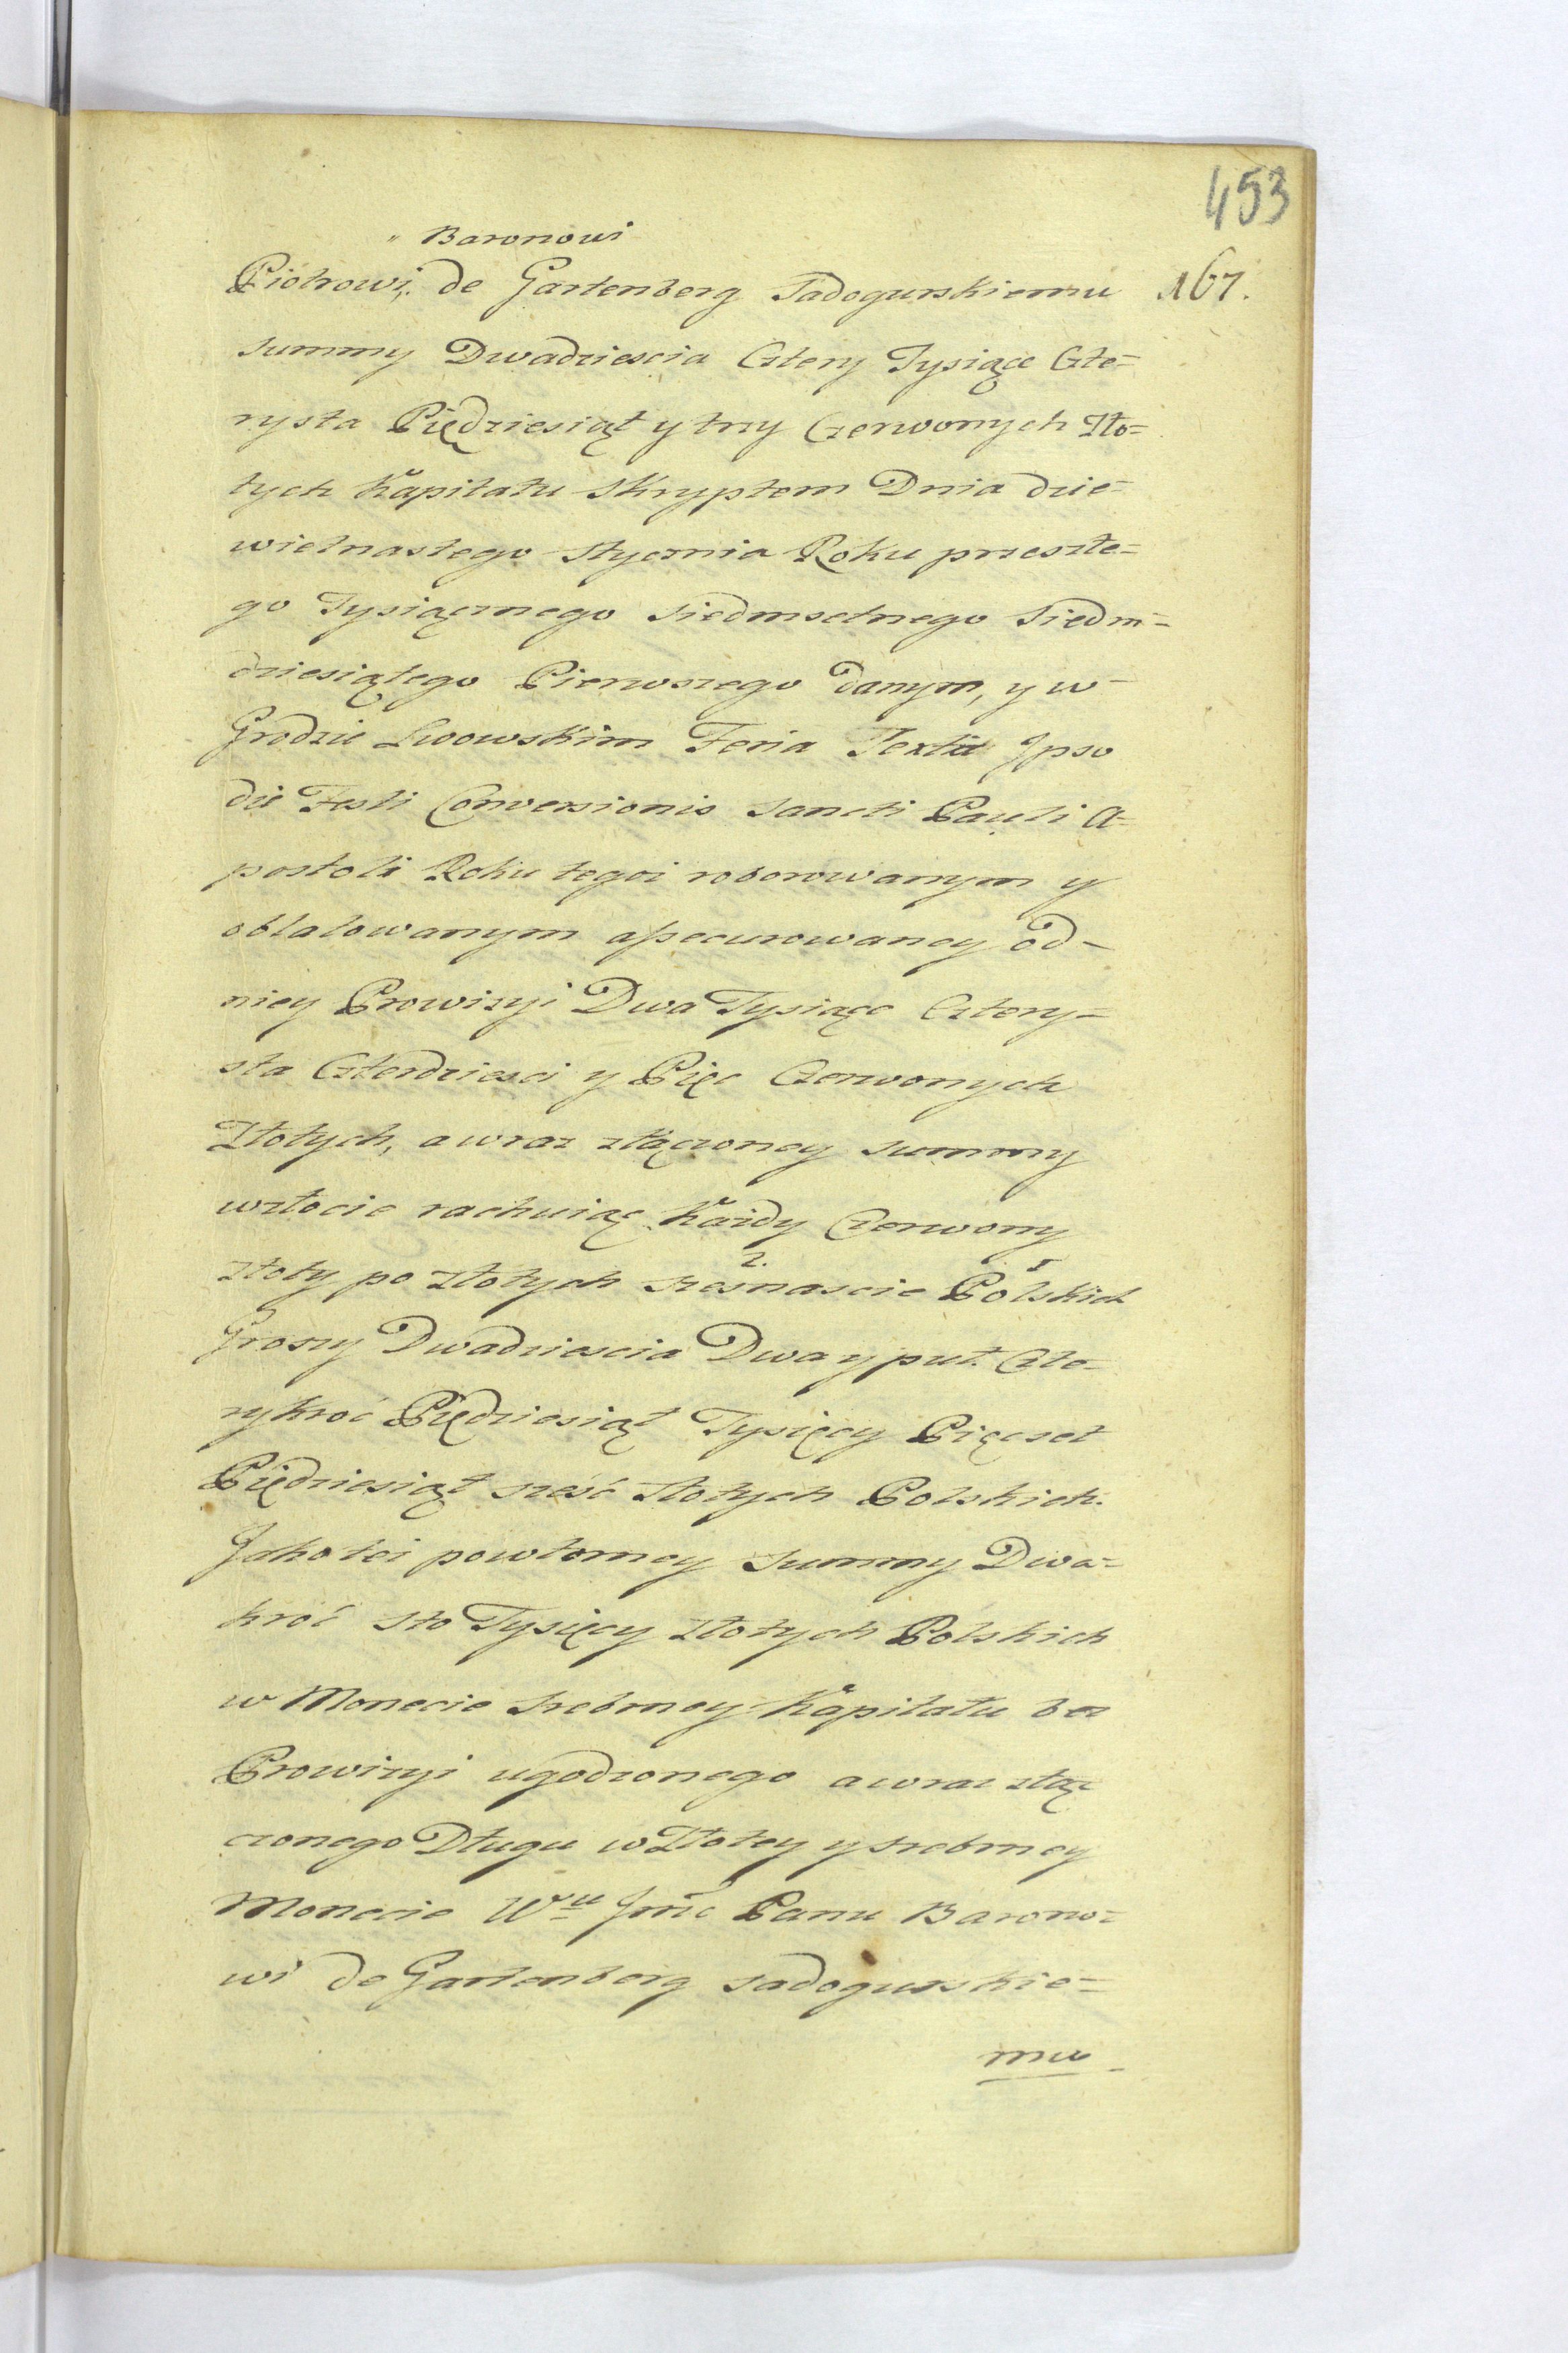 453
" Baronowi
Piotrowi, de Gartenberg Sadogurskiemu 167.
summy Dwadziescia Cztery Tysiące Czte=
rysta Pięдziesiąt y trzy Czerwonych Zło=
tych Kapitału skryptem Dnia dzie=
wietnastego stycznia Roku przeszłe=
go Tysiącznego siedmsetnego Siedm=
dziesiątego Pierwszego danym, y w
Grodzie Lwowskim Feria Sexta Jpso
die Festi Conversionis Sancti Pauli A=
postoli Roku tegoż roborowanym y
oblatowanym assecurowaney od=
niey Prowizyi Dwa Tysiące Cztery=
sta Czterdziesci y Pięc Czerwonych
Złotych, a wraz złączoney summy
wzłocie rachuiąc Każdy Czerwony
złoty po złotych szesnascie 2. Polskich 1
Groszy Dwadziescia Dwa y puł. Czte=
rykroć Pięдziesiąt Tysięcy Pięcset
Pięдziesiąt sześć złotych Polskich.
Jako też powtorney summy Dwa=
kroć sto Tysięcy złotych Polskich
w Monecie srebrney Kapitału bez
Prowizyi ugodzonego a wraz złą
czonego Długu w Złotey y srebrney
Monecie Wu Jmc Panu Barono=
wi de Gartenberg sadogurskie=
mu